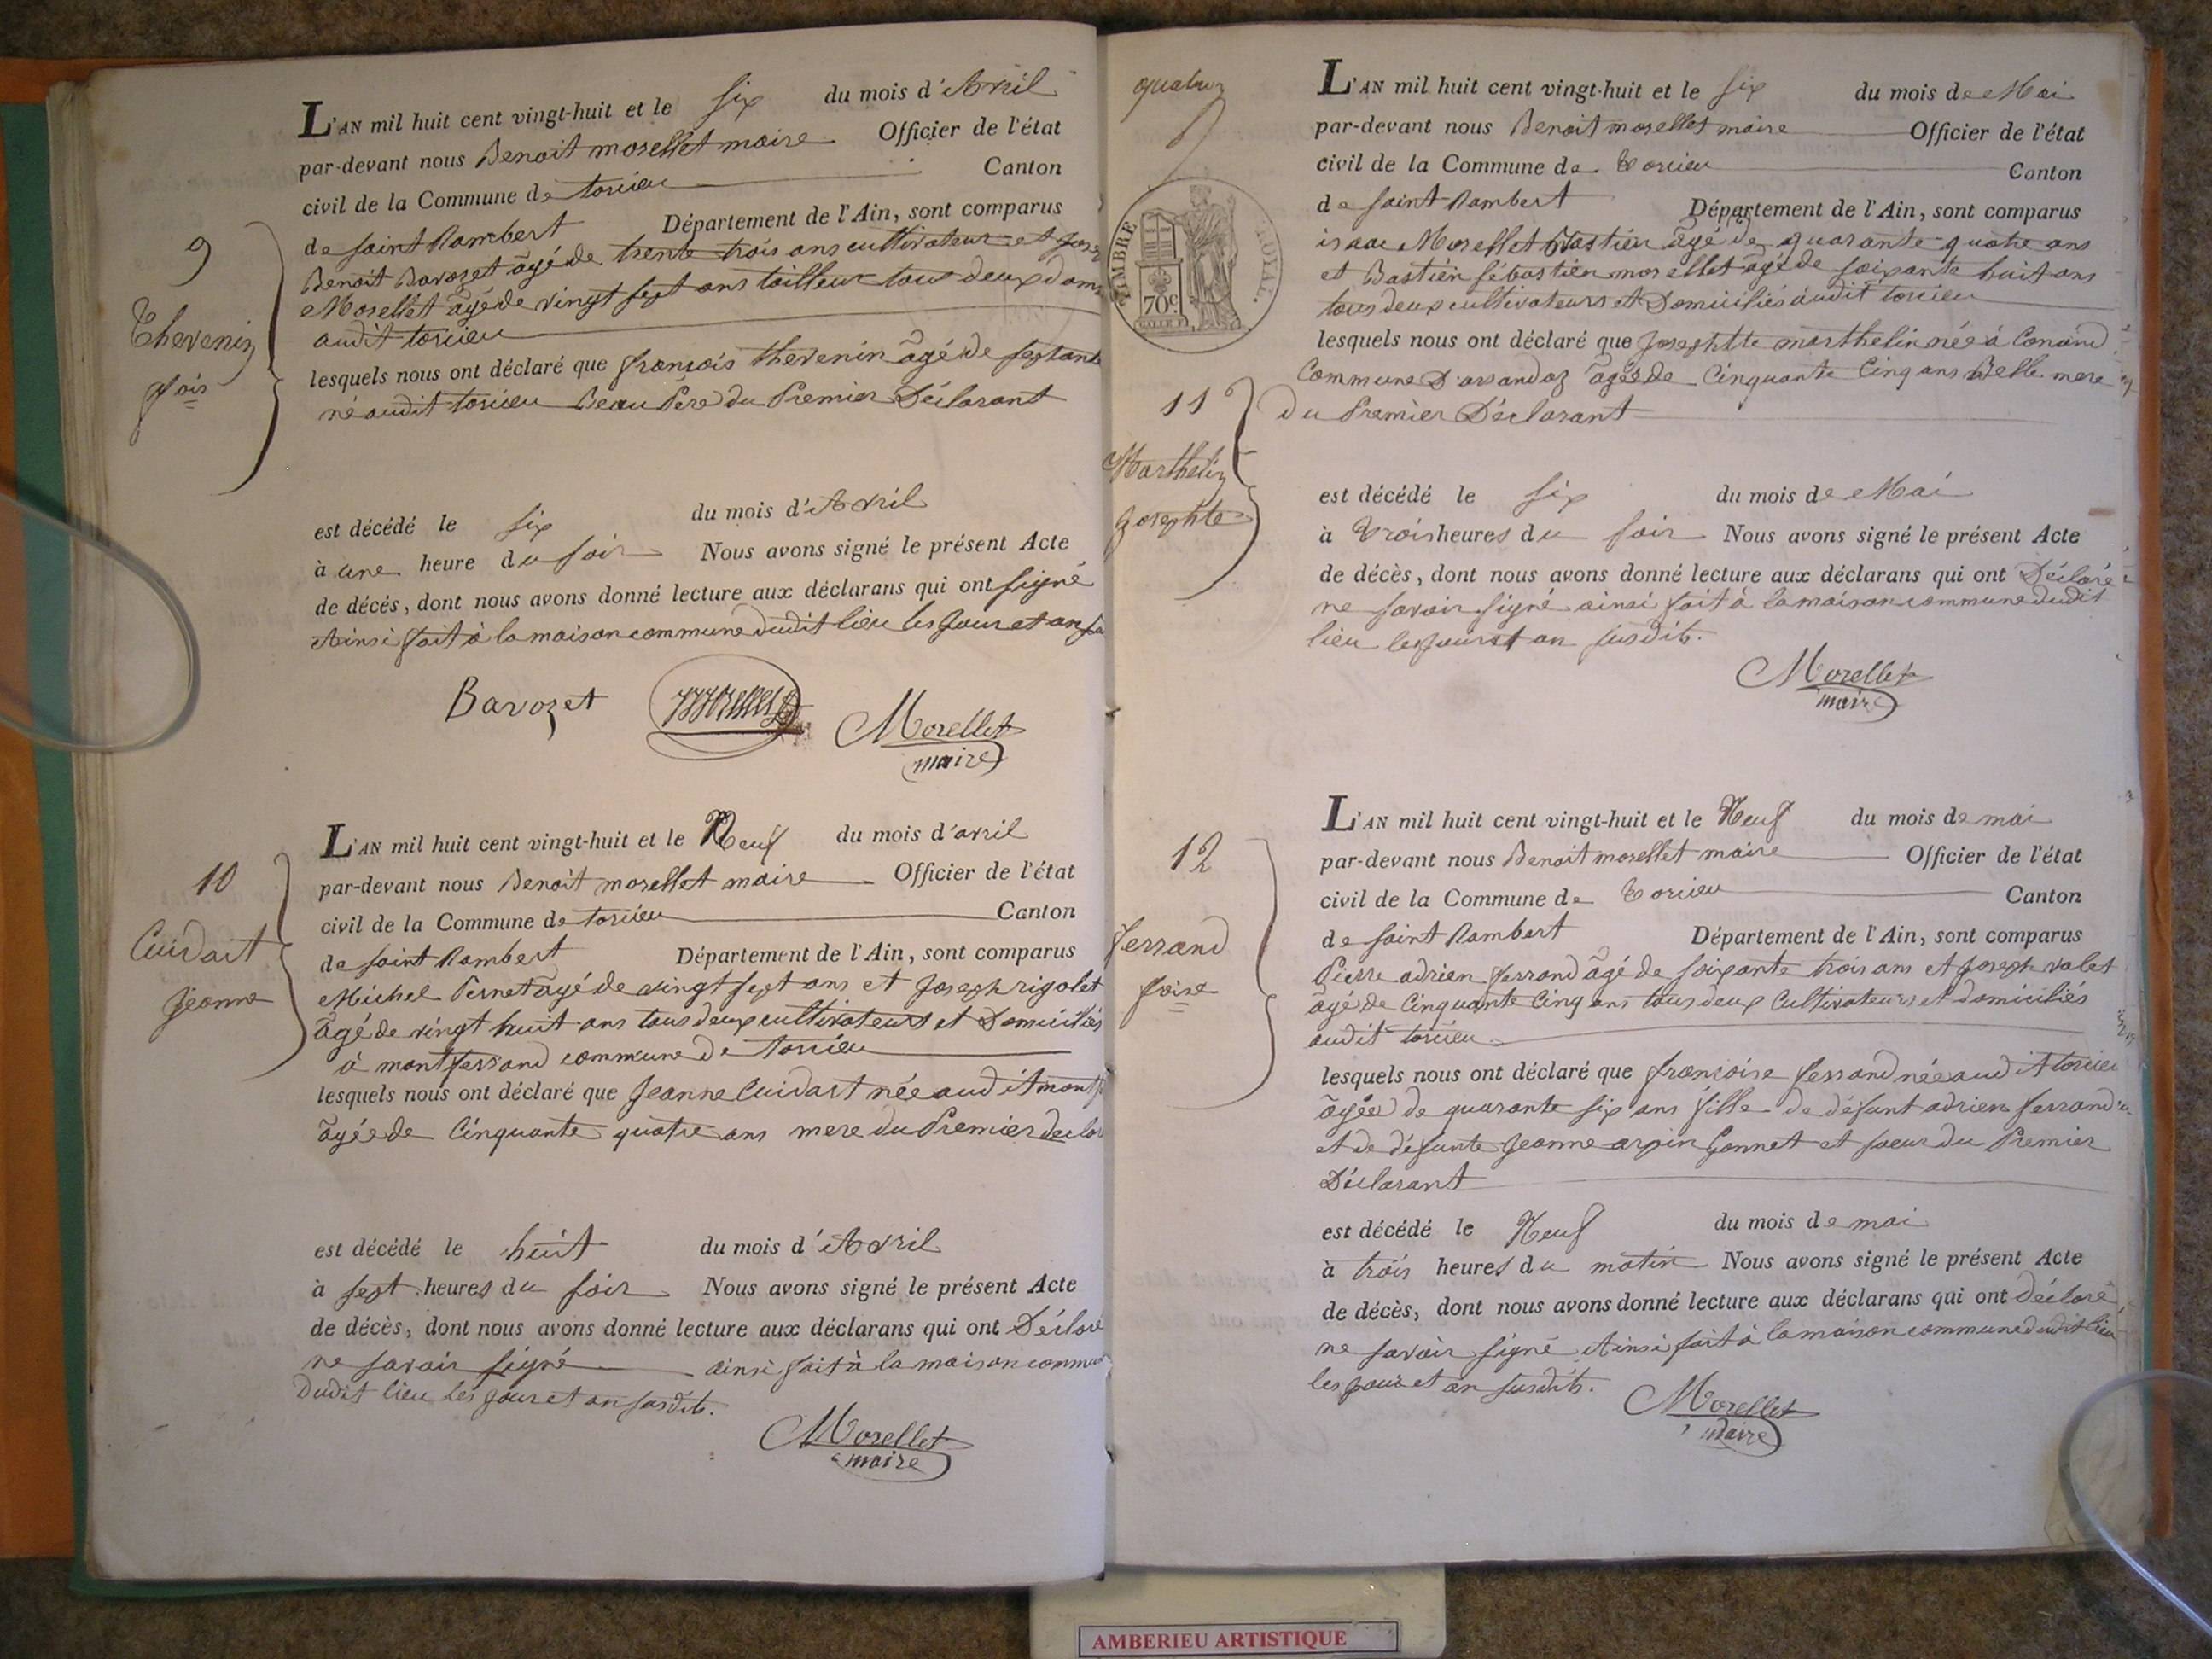 L'AN mil huit cent vingt-huit et le six du mois d'Avril
par-devant nous Benoit morellet maire Officier de l'état
civil de la Commune de torcieu Canton
de saint Rambert Département de l'Ain, sont comparus
Benoit Bavozet âgé de trente trois ans cultivateur et
Morellet âgé de vingt sept ans tailleur tous deux dom
audit torcieu
lesquels nous ont déclaré que françois thevenin âgé de septante
né audit torcieu Beau Père du Premier Déclarant
9
Thevenin
fois
est décédé le six du mois d'Avril
à une heure du soir Nous avons signé le présent Acte
de décés, dont nous avons donné lecture aux déclarans qui ont signé
Ainsi fait à la maison commune dudit lieu les jour et an su
Bavozet Morellet
maire
L'AN mil huit cent vingt-huit et le Neuf du mois d'avril
par-devant nous Benoit morellet maire Officier de l'état
civil de la Commune de torcieu Canton
de saint Rambert Département de l'Ain, sont comparus
Michel Pernet âgé de vingt sept ans et Joseph rigolet
âgé de vingt huit ans tous deux cultivateurs et Domiciliés
à montferrand commune de torcieu
lesquels nous ont déclaré que Jeanne Cuidart née audit montf
âgée de Cinquante quatre ans mere du Premier declar
10
Cuidart
Jeanne
est décédé le huit du mois d'Avril
à sept heures du soir Nous avons signé le présent Acte
de décès, dont nous avons donné lecture aux déclarans qui ont Déclaré
ne savoir signé ainsi fait à la maison commun
dudit lieu les jour et an susdits.
Morellet
maire
quatre
TIMBRE ROYAL.
70c
L'AN mil huit cent vingt-huit et le six du mois de Mai
par-devant nous Benoit morellet maire Officier de l'état
civil de la Commune de Torcieu Canton
de saint Rambert Département de l'Ain, sont comparus
isaac Morellet Bastien âgé de quarante quatre ans
et Bastien sébastien morellet âgé de soixante huit ans
tous deux cultivateurs et Domiciliés audit torcieu
lesquels nous ont déclaré que Josephtte marthelin née à Conand
Commune D'arandaz âgée de Cinquante Cinq ans Belle mere
du Premier Déclarant
11
Marthelin
Josephte
est décédé le six du mois de Mai
à Trois heures du soir Nous avons signé le présent Acte
de décès, dont nous avons donné lecture aux déclarans qui ont Déclaré
ne savoir signé ainsi fait à la maison commune dudit
lieu les jour et an susdits.
Morellet
maire
L'AN mil huit cent vingt-huit et le Neuf du mois de mai
par-devant nous Benoit morellet maire Officier de l'état
civil de la Commune de Torcieu Canton
de saint Rambert Département de l'Ain, sont comparus
Pierre adrien ferrand âgé de soixante trois ans et Joseph valet
âgé de Cinquante Cinq ans tous deux Cultivateurs et domiciliés
audit torcieu
lesquels nous ont déclaré que françoise ferrand née audit torcieu
âgée de quarante six ans fille de défunt adrien ferrand
et de défunte Jeanne arpin Gonnet et soeur du Premier
Déclarant
12
ferrand
foise
est décédé le Neuf du mois de mai
à trois heures du matin Nous avons signé le présent Acte
de décès, dont nous avons donné lecture aux déclarans qui ont déclaré
ne savoir signé Ainsi fait à la maison commune dudit lieu
les jour et an susdits.
Morellet
maire
AMBERIEU ARTISTIQUE